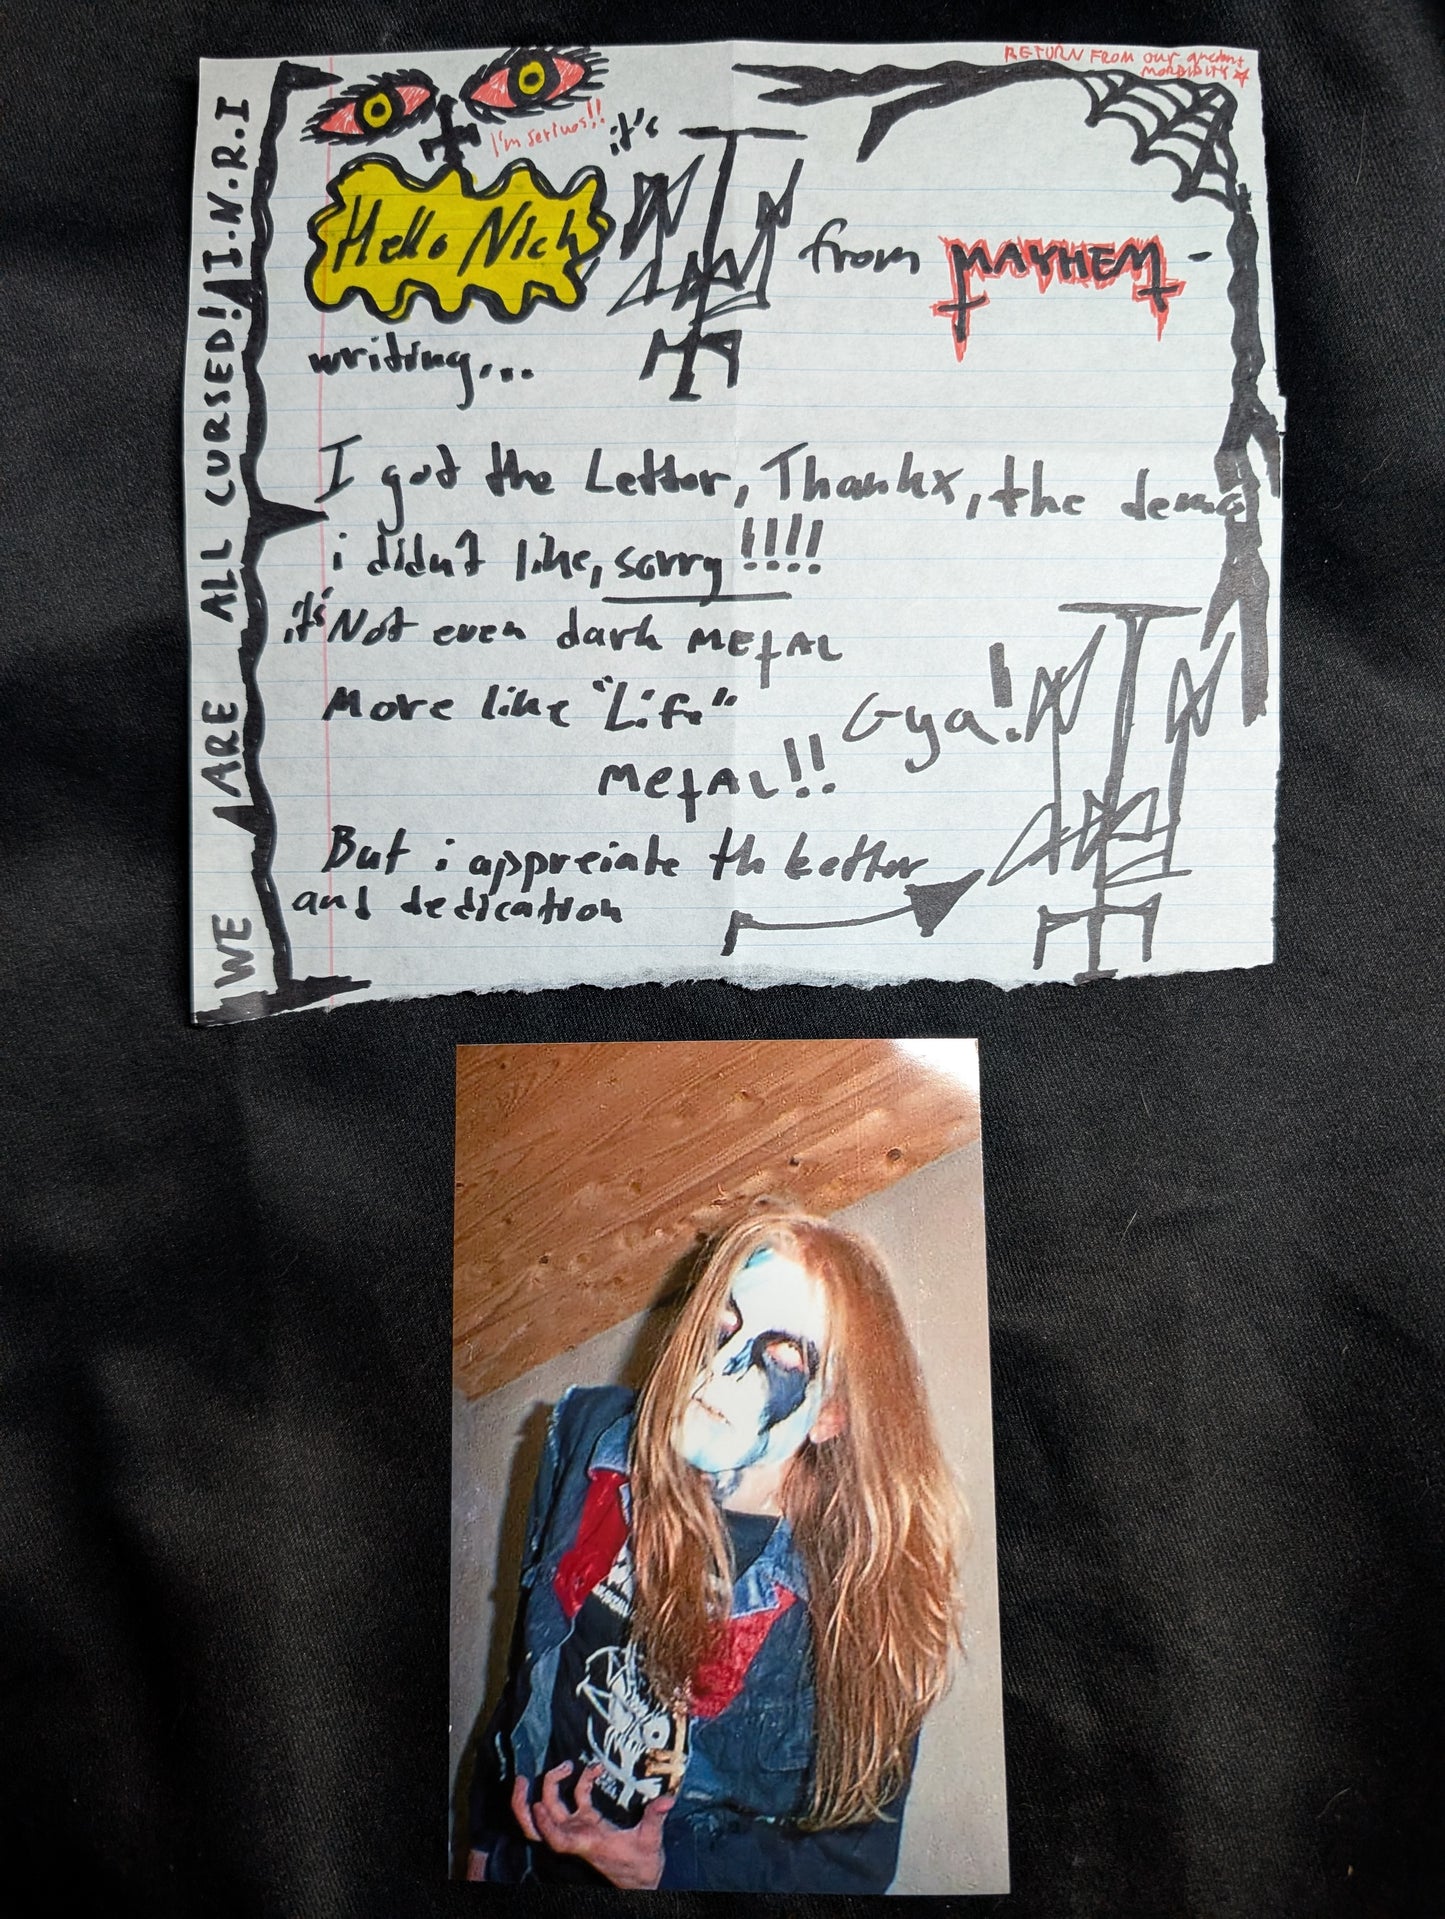 RETURN FROM our ancient
MORBIDITY
I'm serivos!!
Hello Nick it's from MAYHEM -
writing...
I got the Letter, Thankx, the demo
i didn't like, sorry!!!!
it's Not even dark METAL
More like "Life"
METAL!! Gya!
But i appreiate th Letter
and dedication
WE ARE ALL CURSED! I.N.R.I